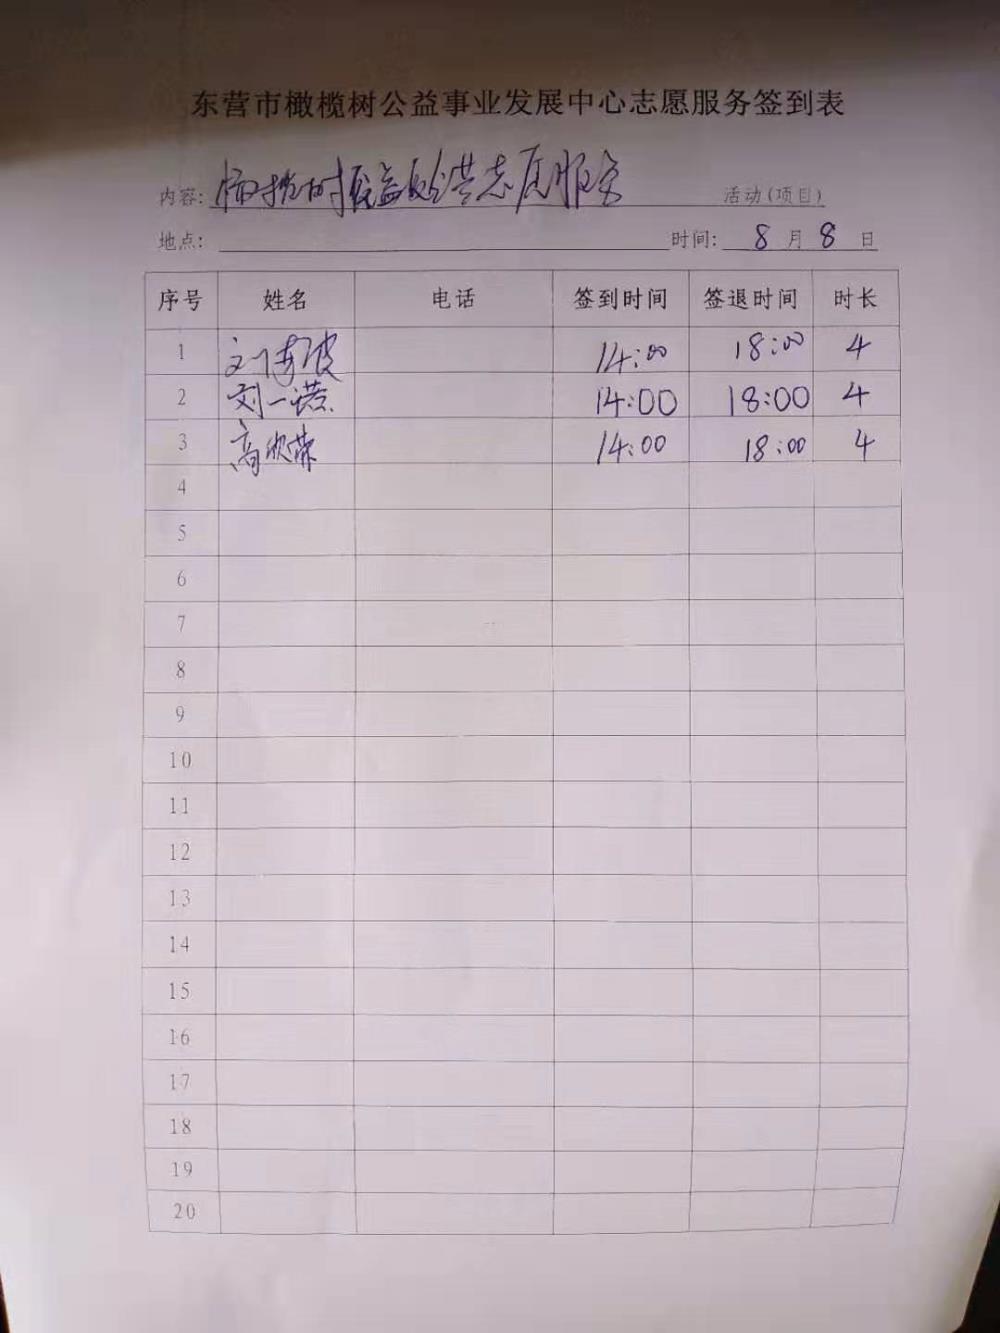 东营市橄榄树公益事业发展中心志愿服务签到表
内容: 橄榄树公益 志愿服务 活动(项目)
地点: 时间: 8 月 8 日
序号 姓名 电话 签到时间 签退时间 时长
1 刘海波 14:00 18:00 4
2 刘一诺 14:00 18:00 4
3 高欣荣 14:00 18:00 4
4
5
6
7
8
9
10
11
12
13
14
15
16
17
18
19
20